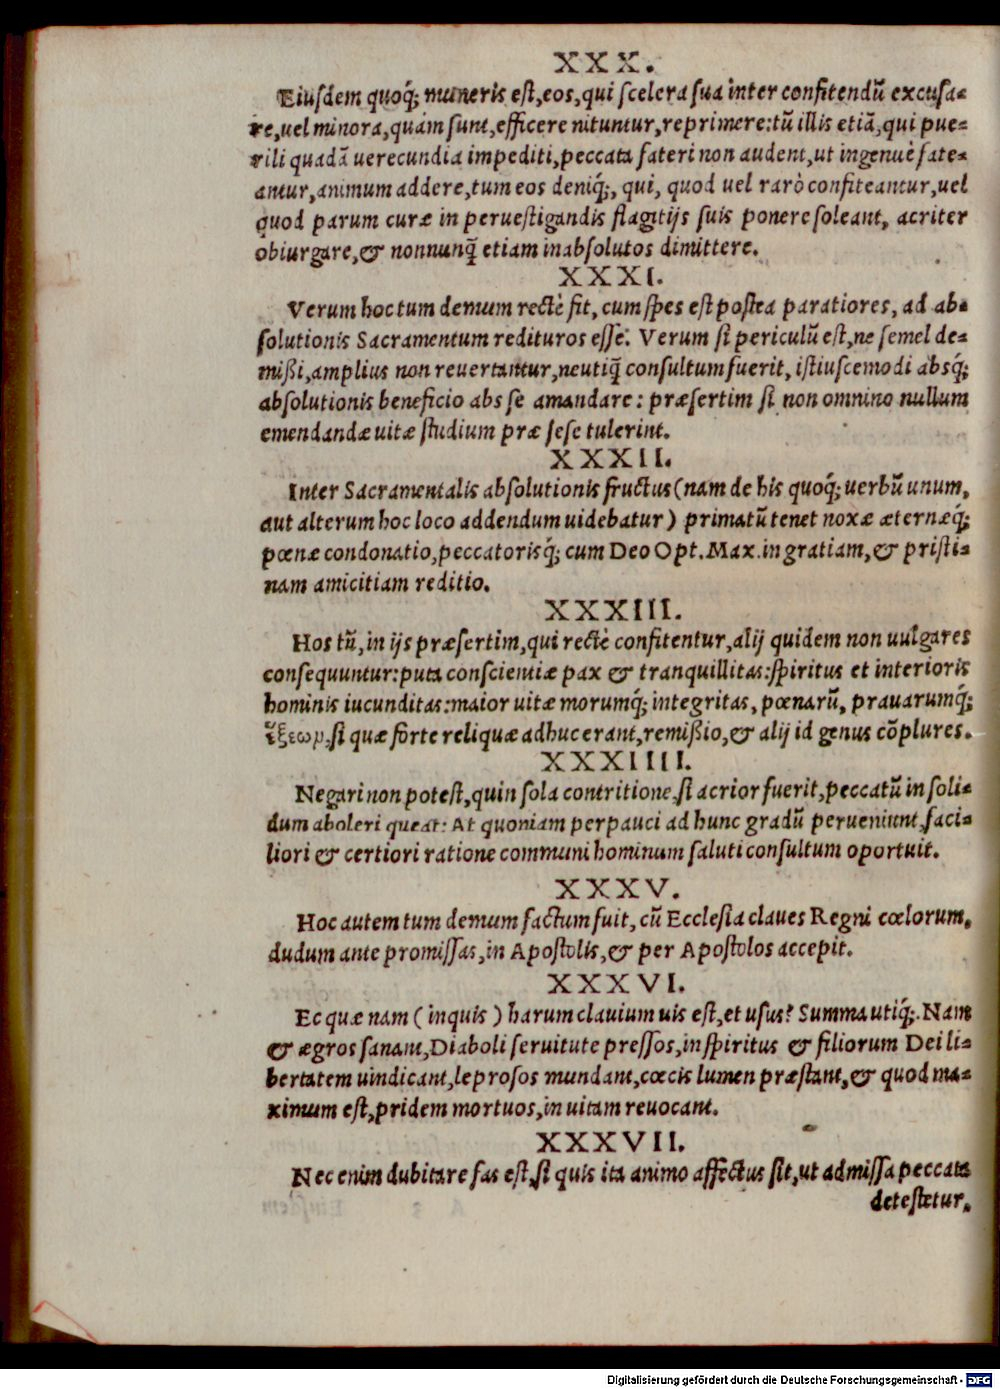 XXX.
Eiusdem quoq́; muneris est, eos, qui scelera sua inter confitendũ excusa-
re, uel minora, quàm sunt, efficere nituntur, reprimere: tũ illis etiã, qui pue-
rili quadã uerecundia impediti, peccata fateri non audent, ut ingenuè fate-
antur, animum addere, tum eos deniq́;, qui, quod uel rarò confiteantur, uel
quod parum curæ in peruestigandis flagitijs suis ponere soleant, acriter
obiurgare, & nonnunq̃ etiam inabsolutos dimittere.
XXXI.
Verum hoc tum demum rectè fit, cum spes est postea paratiores, ad ab-
solutionis Sacramentum redituros esse. Verum si periculũ est, ne semel de-
mißi, amplius non reuertantur, neutiq̃ consultum fuerit, istiuscemodi absq́;
absolutionis beneficio abs se amandare: præsertim si non omnino nullum
emendandæ uitæ studium præ sese tulerint.
XXXII.
Inter Sacramentalis absolutionis fructus (nam de his quoq́; uerbũ unum,
aut alterum hoc loco addendum uidebatur) primatũ tenet noxæ æternæq́;
pœnæ condonatio, peccatorisq́; cum Deo Opt. Max. in gratiam, & pristi-
nam amicitiam reditio.
XXXIII.
Hos tũ, in ijs præsertim, qui rectè confitentur, alij quidem non uulgares
consequuntur: puta conscientiæ pax & tranquillitas: spiritus et interioris
hominis iucunditas: maior uitæ morumq́; integritas, pœnarũ, prauarumq́;
ἕξεωρ, si quæ forte reliquæ adhuc erant, remißio, & alij id genus cõplures.
XXXIIII.
Negari non potest, quin sola contritione, si acrior fuerit, peccatũ in soli-
dum aboleri queat: At quoniam perpauci ad hunc gradũ perueniunt, faci-
liori & certiori ratione communi hominum saluti consultum oportuit.
XXXV.
Hoc autem tum demum factum fuit, cũ Ecclesia claues Regni cœlorum,
dudum ante promissas, in Apostolis, & per Apostolos accepit.
XXXVI.
Ecquæ nam (inquis) harum clauium uis est, et usus? Summa utiq́;. Nam
& ægros sanant, Diaboli seruitute pressos, in spiritus & filiorum Dei li-
bertatem uindicant, leprosos mundant, cœcis lumen præstant, & quod ma-
ximum est, pridem mortuos, in uitam reuocant.
XXXVII.
Nec enim dubitare fas est, si quis ita animo affectus sit, ut admissa peccata
detestetur,
Digitalisierung gefördert durch die Deutsche Forschungsgemeinschaft - DFG